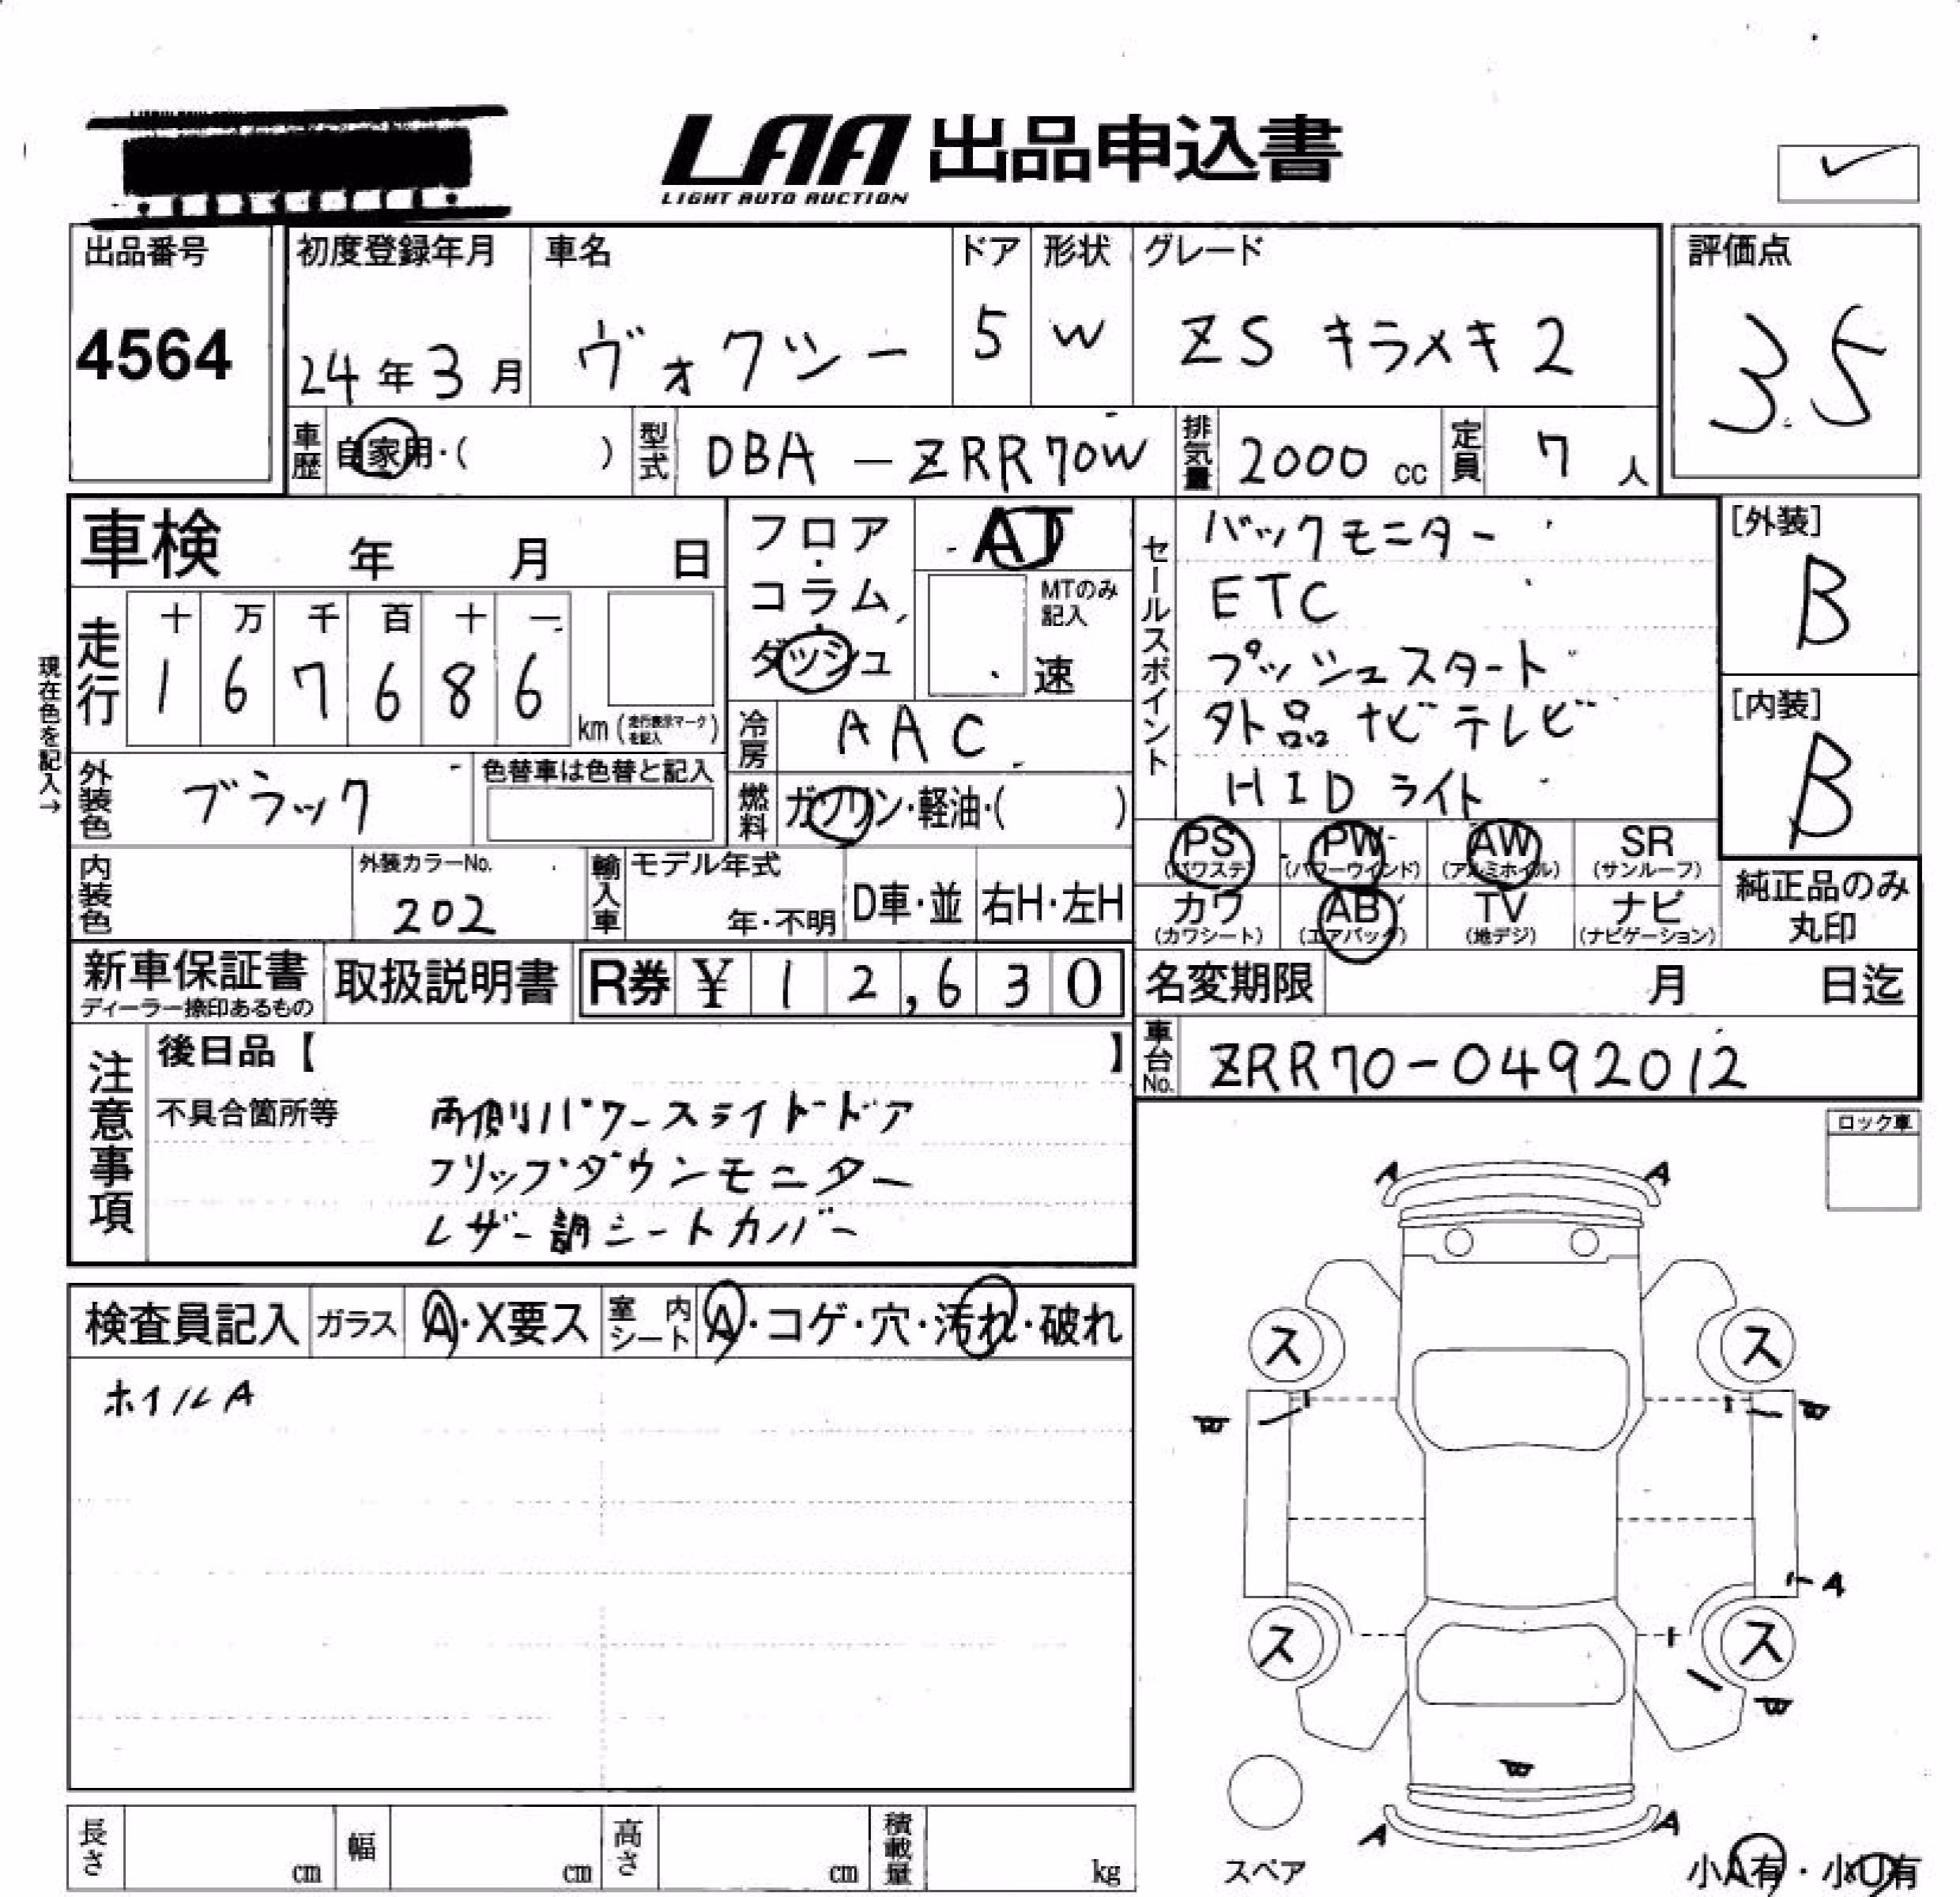 LAA 出品申込書
LIGHT AUTO AUCTION
出品番号
4564
初度登録年月
24年3月
車名
ヴォクシー
ドア
5
形状
W
グレード
ZS キラメキ2
評価点
3.5
車歴
自家用・( )
型式
DBA-ZRR70W
排気量
2000 cc
定員
7人
車検 年 月 日
フロア・コラム・ダッシュ
AT
MTのみ記入
速
走行
十 万 千 百 十 一
1 6 7 6 8 6
km(走行表示マークを記入)
現在色を記入→
冷房
AAC
燃料
ガソリン・軽油・( )
外装色
ブラック
色替車は色替と記入
内装色
外装カラーNo.
202
輸入車
モデル年式
年・不明
D車・並
右H・左H
セールスポイント
バックモニター
ETC
プッシュスタート
外品ナビテレビ
HIDライト
[外装]
B
[内装]
B
PS
(パワステ)
PW
(パワーウインド)
AW
(アルミホイル)
SR
(サンルーフ)
カワ
(カワシート)
AB
(エアバック)
TV
(地デジ)
ナビ
(ナビゲーション)
純正品のみ
丸印
新車保証書
ディーラー捺印あるもの
取扱説明書
R券 ¥ 1 2,6 3 0
名変期限 月 日迄
車台No.
ZRR70-0492012
注意事項
後日品【 】
不具合箇所等
両側パワースライドドア
フリップダウンモニター
レザー調シートカバー
ロック車
検査員記入
ガラス
A・X要ス
室内シート
A・コゲ・穴・汚れ・破れ
ホイルA
A A
ス ス
W W
A
ス ス
W
W
A A
スペア
小A有・小U有
長さ cm
幅 cm
高さ cm
積載量 kg